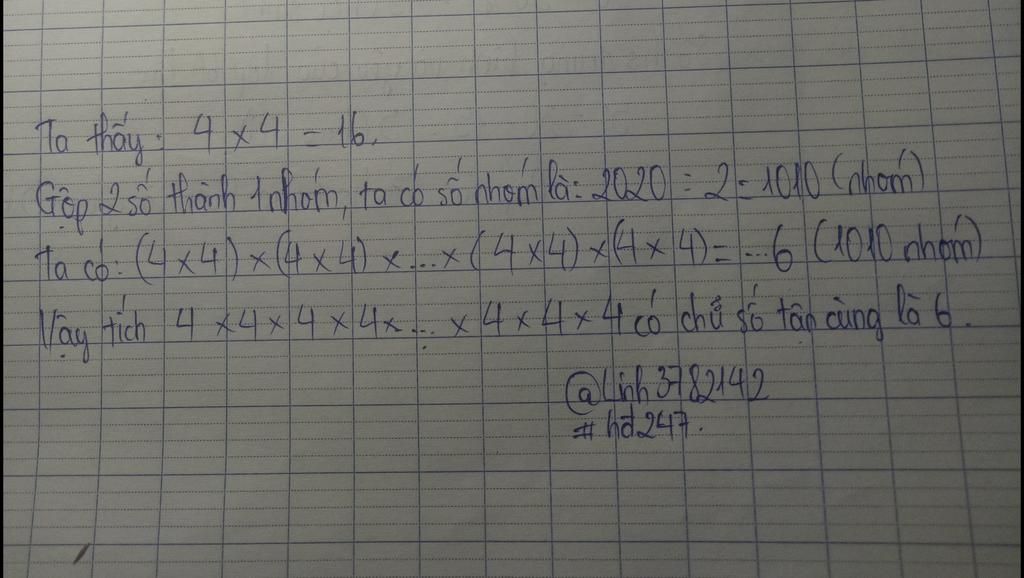 Ta thấy: 4 × 4 = 16.
Gộp 2 số thành 1 nhóm, ta có số nhóm là: 2020 : 2 = 1010 (nhóm)
Ta có: (4 × 4) × (4 × 4) × ... × (4 × 4) × (4 × 4) = ...6 (1010 nhóm)
Vậy tích 4 × 4 × 4 × 4 × ... × 4 × 4 × 4 có chữ số tận cùng là 6.
@Linh3782142
#hđ247.